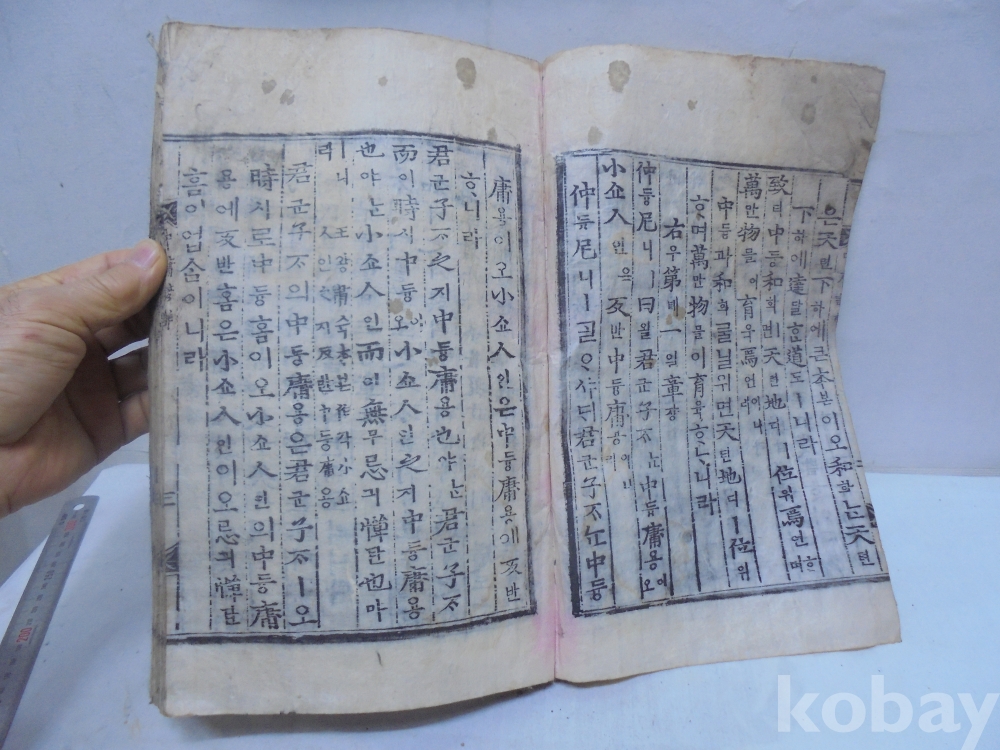 은天텬下하에큰本본이오和화ᄂᆞᆫ天텬
下하에達달ᄒᆞᆫ道도ㅣ니라
致티中듕和화ㅣ면天텬地디ㅣ位위焉언ᄒᆞ며
萬만物믈이育육焉언이니라
中듕과和화ᄅᆞᆯ닐위면天텬地디ㅣ位위
ᄒᆞ며萬만物믈이育육ᄒᆞᄂᆞ니라
右우第뎨一일章쟝
仲듕尼니ㅣ曰왈君군子ᄌᆞᄂᆞᆫ中듕庸용이오
小쇼人인은反반中듕庸용이니
仲듕尼니ㅣᄀᆞᆯᄋᆞ샤ᄃᆡ君군子ᄌᆞᄂᆞᆫ中듕
庸용이오小쇼人인은中듕庸용애反반
ᄒᆞ니라
君군子ᄌᆞ之지中듕庸용也야ᄂᆞᆫ君군子ᄌᆞ
而이時시中듕이오小쇼人인之지中듕庸용
也야ᄂᆞᆫ小쇼人인而이無무忌긔憚탄也야ㅣ
니라 王왕肅슉本본作작小쇼人인之지反반中듕庸용
君군子ᄌᆞ의中듕庸용은君군子ᄌᆞㅣ오
時시로中듕홈이오小쇼人인의中듕庸
용에反반홈은小쇼人인이오忌긔憚탄
홈이업슴이니라
三
kobay